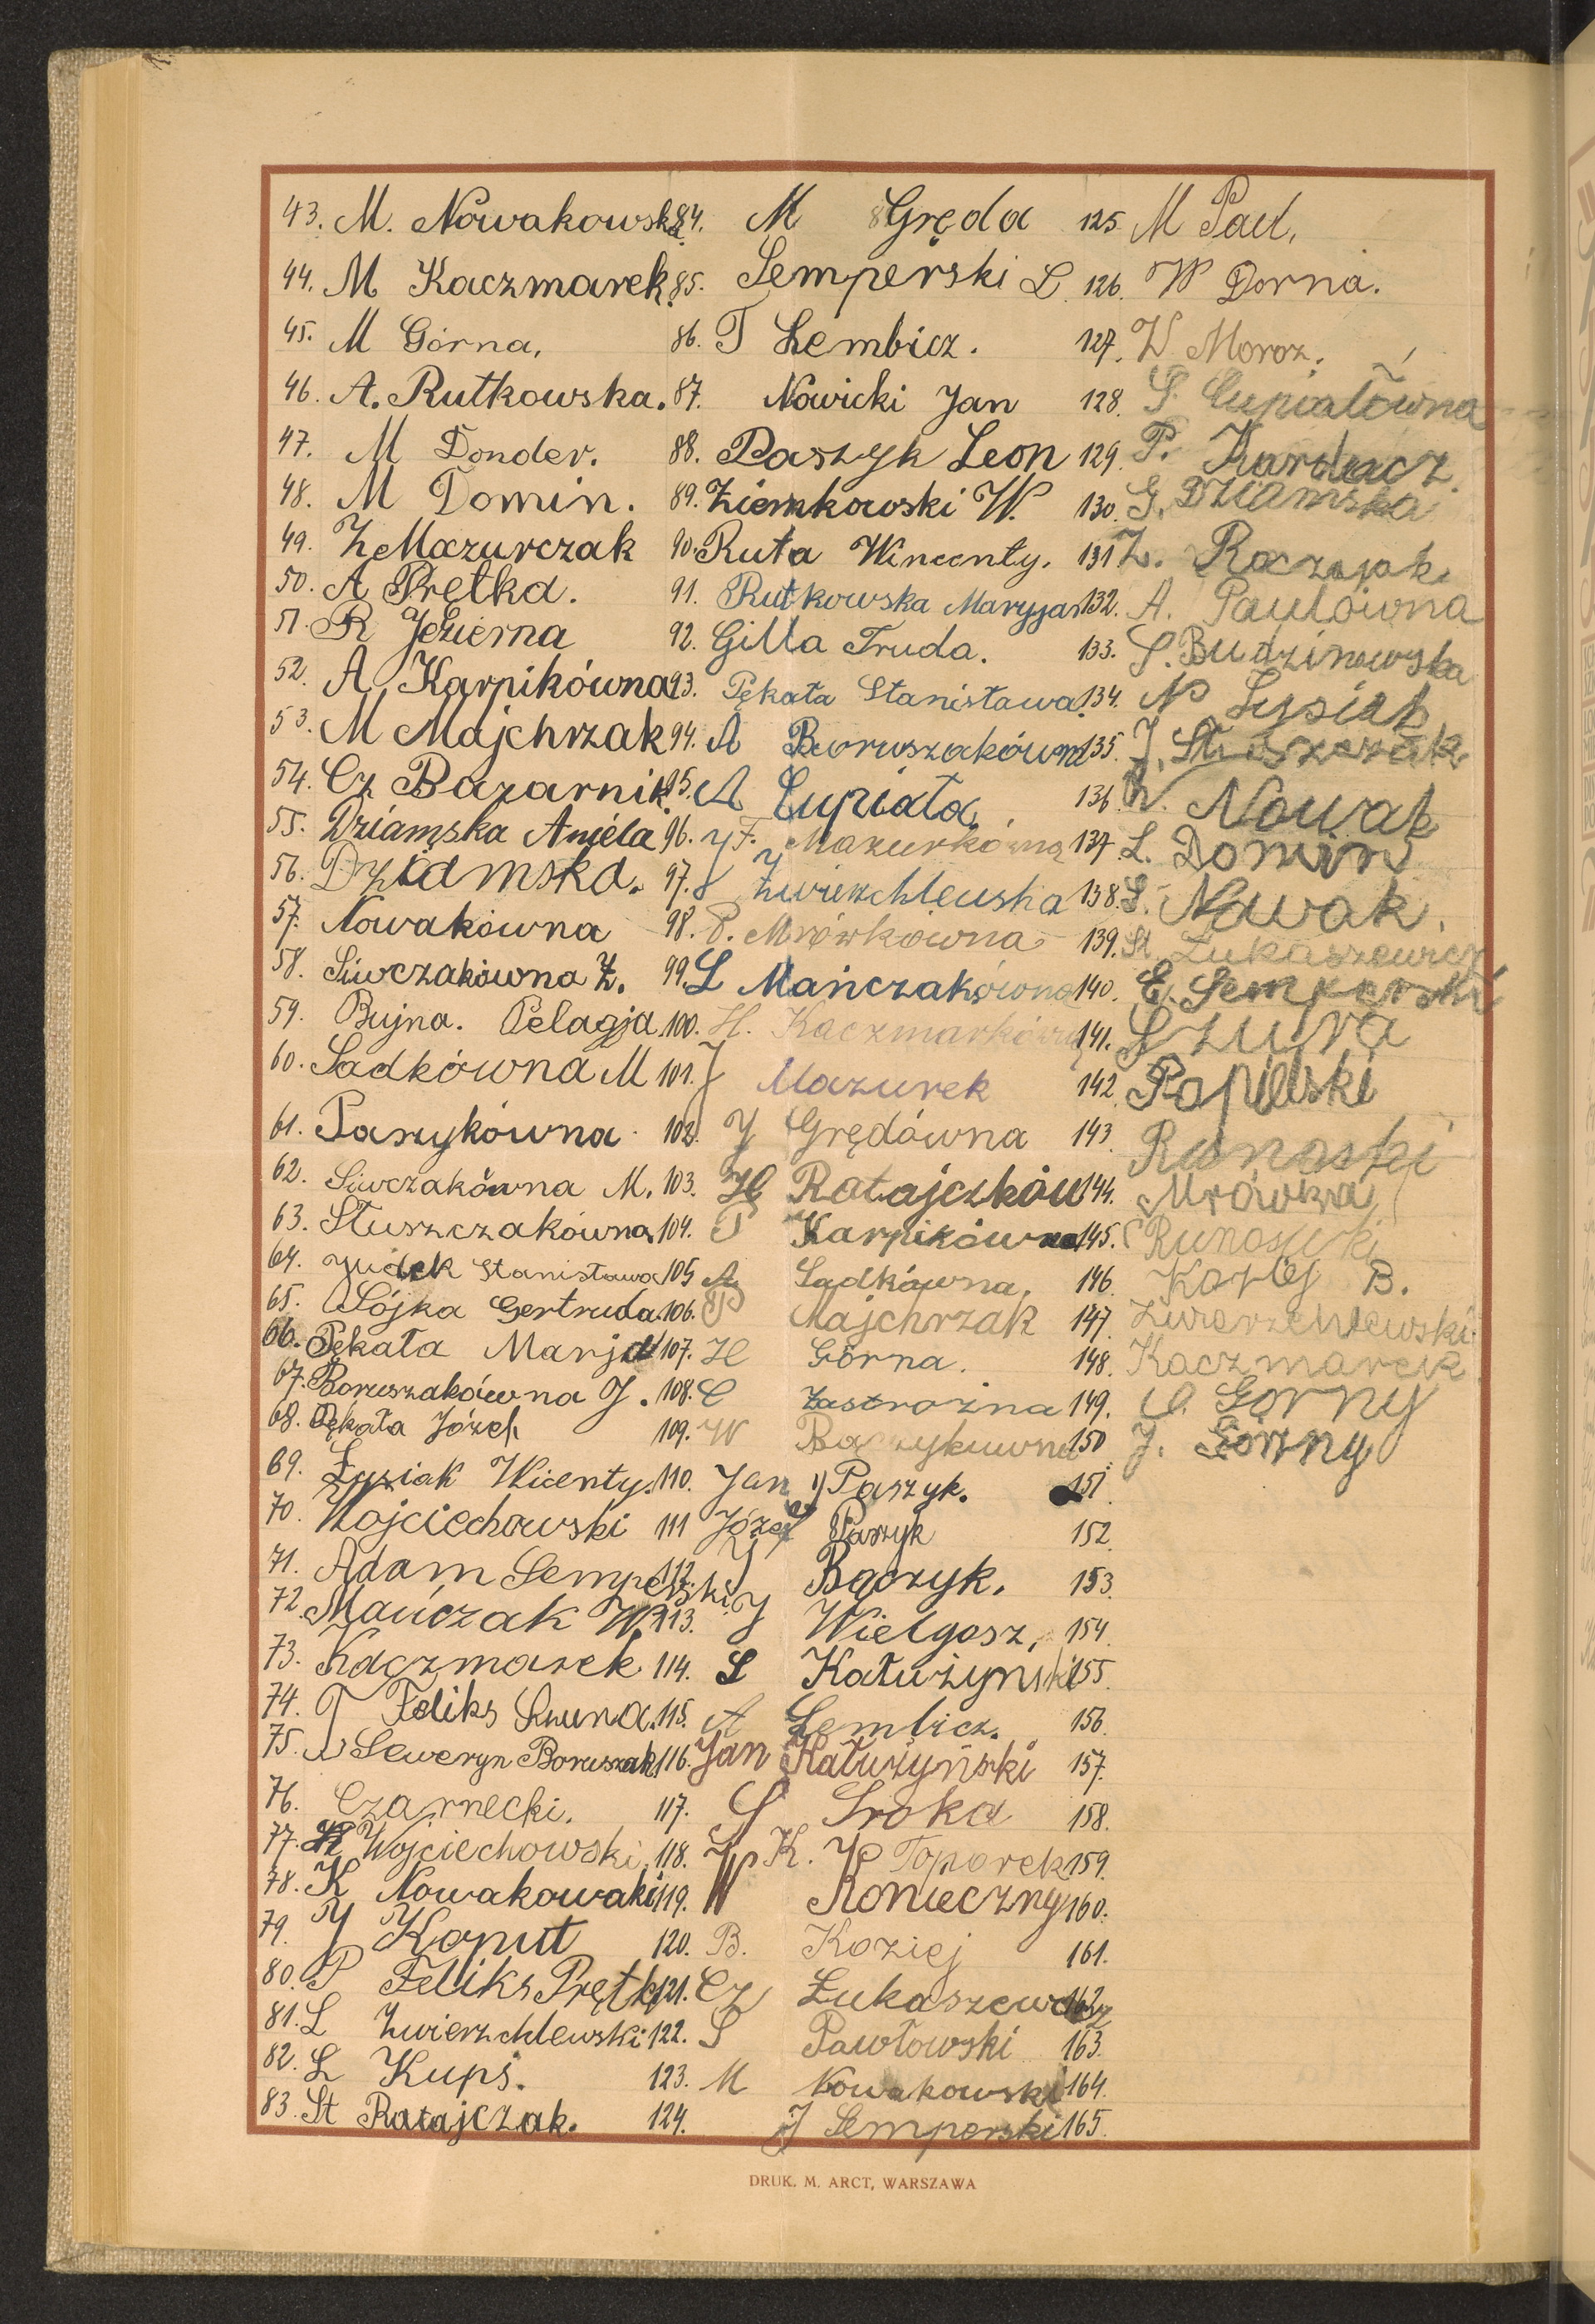 43. M. Nowakowska.
44. M Kaczmarek.
45. M Górna.
46. A. Rutkowska.
47. M Donder.
48. M Domin.
49. Z Mazurczak
50. A Prętka.
51. R Jezierna
52. A Karpikówna
53. M Majchrzak
54. Cz Bazarnik.
55. Dziamska Aniela
56. Dziamska.
57. Nowakówna
58. Siwczakówna Z.
59. Bujna. Pelagja.
60. Sadkówna M
61. Paszykówna
62. Siwczakówna M.
63. Stuszczakówna
64. Judek Stanisława
65. Sójka Gertruda.
66. Pękata Marja
67. Boruszakówna J.
68. Pękata Józef
69. Łysiak Wicenty.
70. Wojciechowski
71. Adam Semperski
72. Mańczak Wł
73. Kaczmarek
74. T Feliks
75. Seweryn Boruszak
76. Czarnecki.
77. Wojciechowski.
78. K Nowakowski
79. J Kaput
80. P Feliks Prętki
81. L Zwierzchlewski
82. L Kupś.
83. St Ratajczak.
84. M Gręda
85. Semperski L.
86. T Lembicz.
87. Nowicki Jan
88. Paszyk Leon
89. Ziemkowski W.
90. Ruta Wincenty.
91. Rutkowska Maryja
92. Gilla Truda.
93. Pękata Stanisława.
94. A Boruszakówna
95. A Cupiała
96. J F. Mazurkówna
97. J
98. P. Mrówkówna
99. L Mańczakówna
100. H. Kaczmarkówna
101. J Mazurek
102. J Grędówna
103. H Ratajczków
104. P Karpikówna
105 A Sadkówna,
106. P Majchrzak
107. H Górna.
108. C Zastrożna
109. W
110. Jan Paszyk.
111 Józef Paszyk
112. J Bączyk.
113. J Wielgosz,
114. S Kałużyński
115. A Lembicz.
116. Jan Kałużyński
117. S Sroka
118. W K. Toporek
119. W Konieczny
120. B. Koziej
121. Cz Łukaszewicz
122. S Pawłowski
123. M Nowakowski
124. J Semperski
125. M Paul.
126. W Dorna.
127. W Moroz.
128. S. Cupiałówna
129. P. Kardacz.
130. G. Dziamska
131 Z.
132. A. Paulówna
133. S. Budzinowska
134. N Łysiak
135. J. Stuszczak
136 W. Nowak
137. L. Domin
138. S. Nowak.
139. St. Łukaszewicz
140. E. Semperski
141. Szura
142. Rapilski
143. Runoski
144. Mrówka
145. Runowski
146. Koziej B.
147. Zwierzchlewski
148. Kaczmarek
149. C. Gorny
150 J. Górny
151.
152.
153.
154.
155.
156.
157.
158.
159.
160.
161.
162.
163.
164.
165.
DRUK. M. ARCT, WARSZAWA